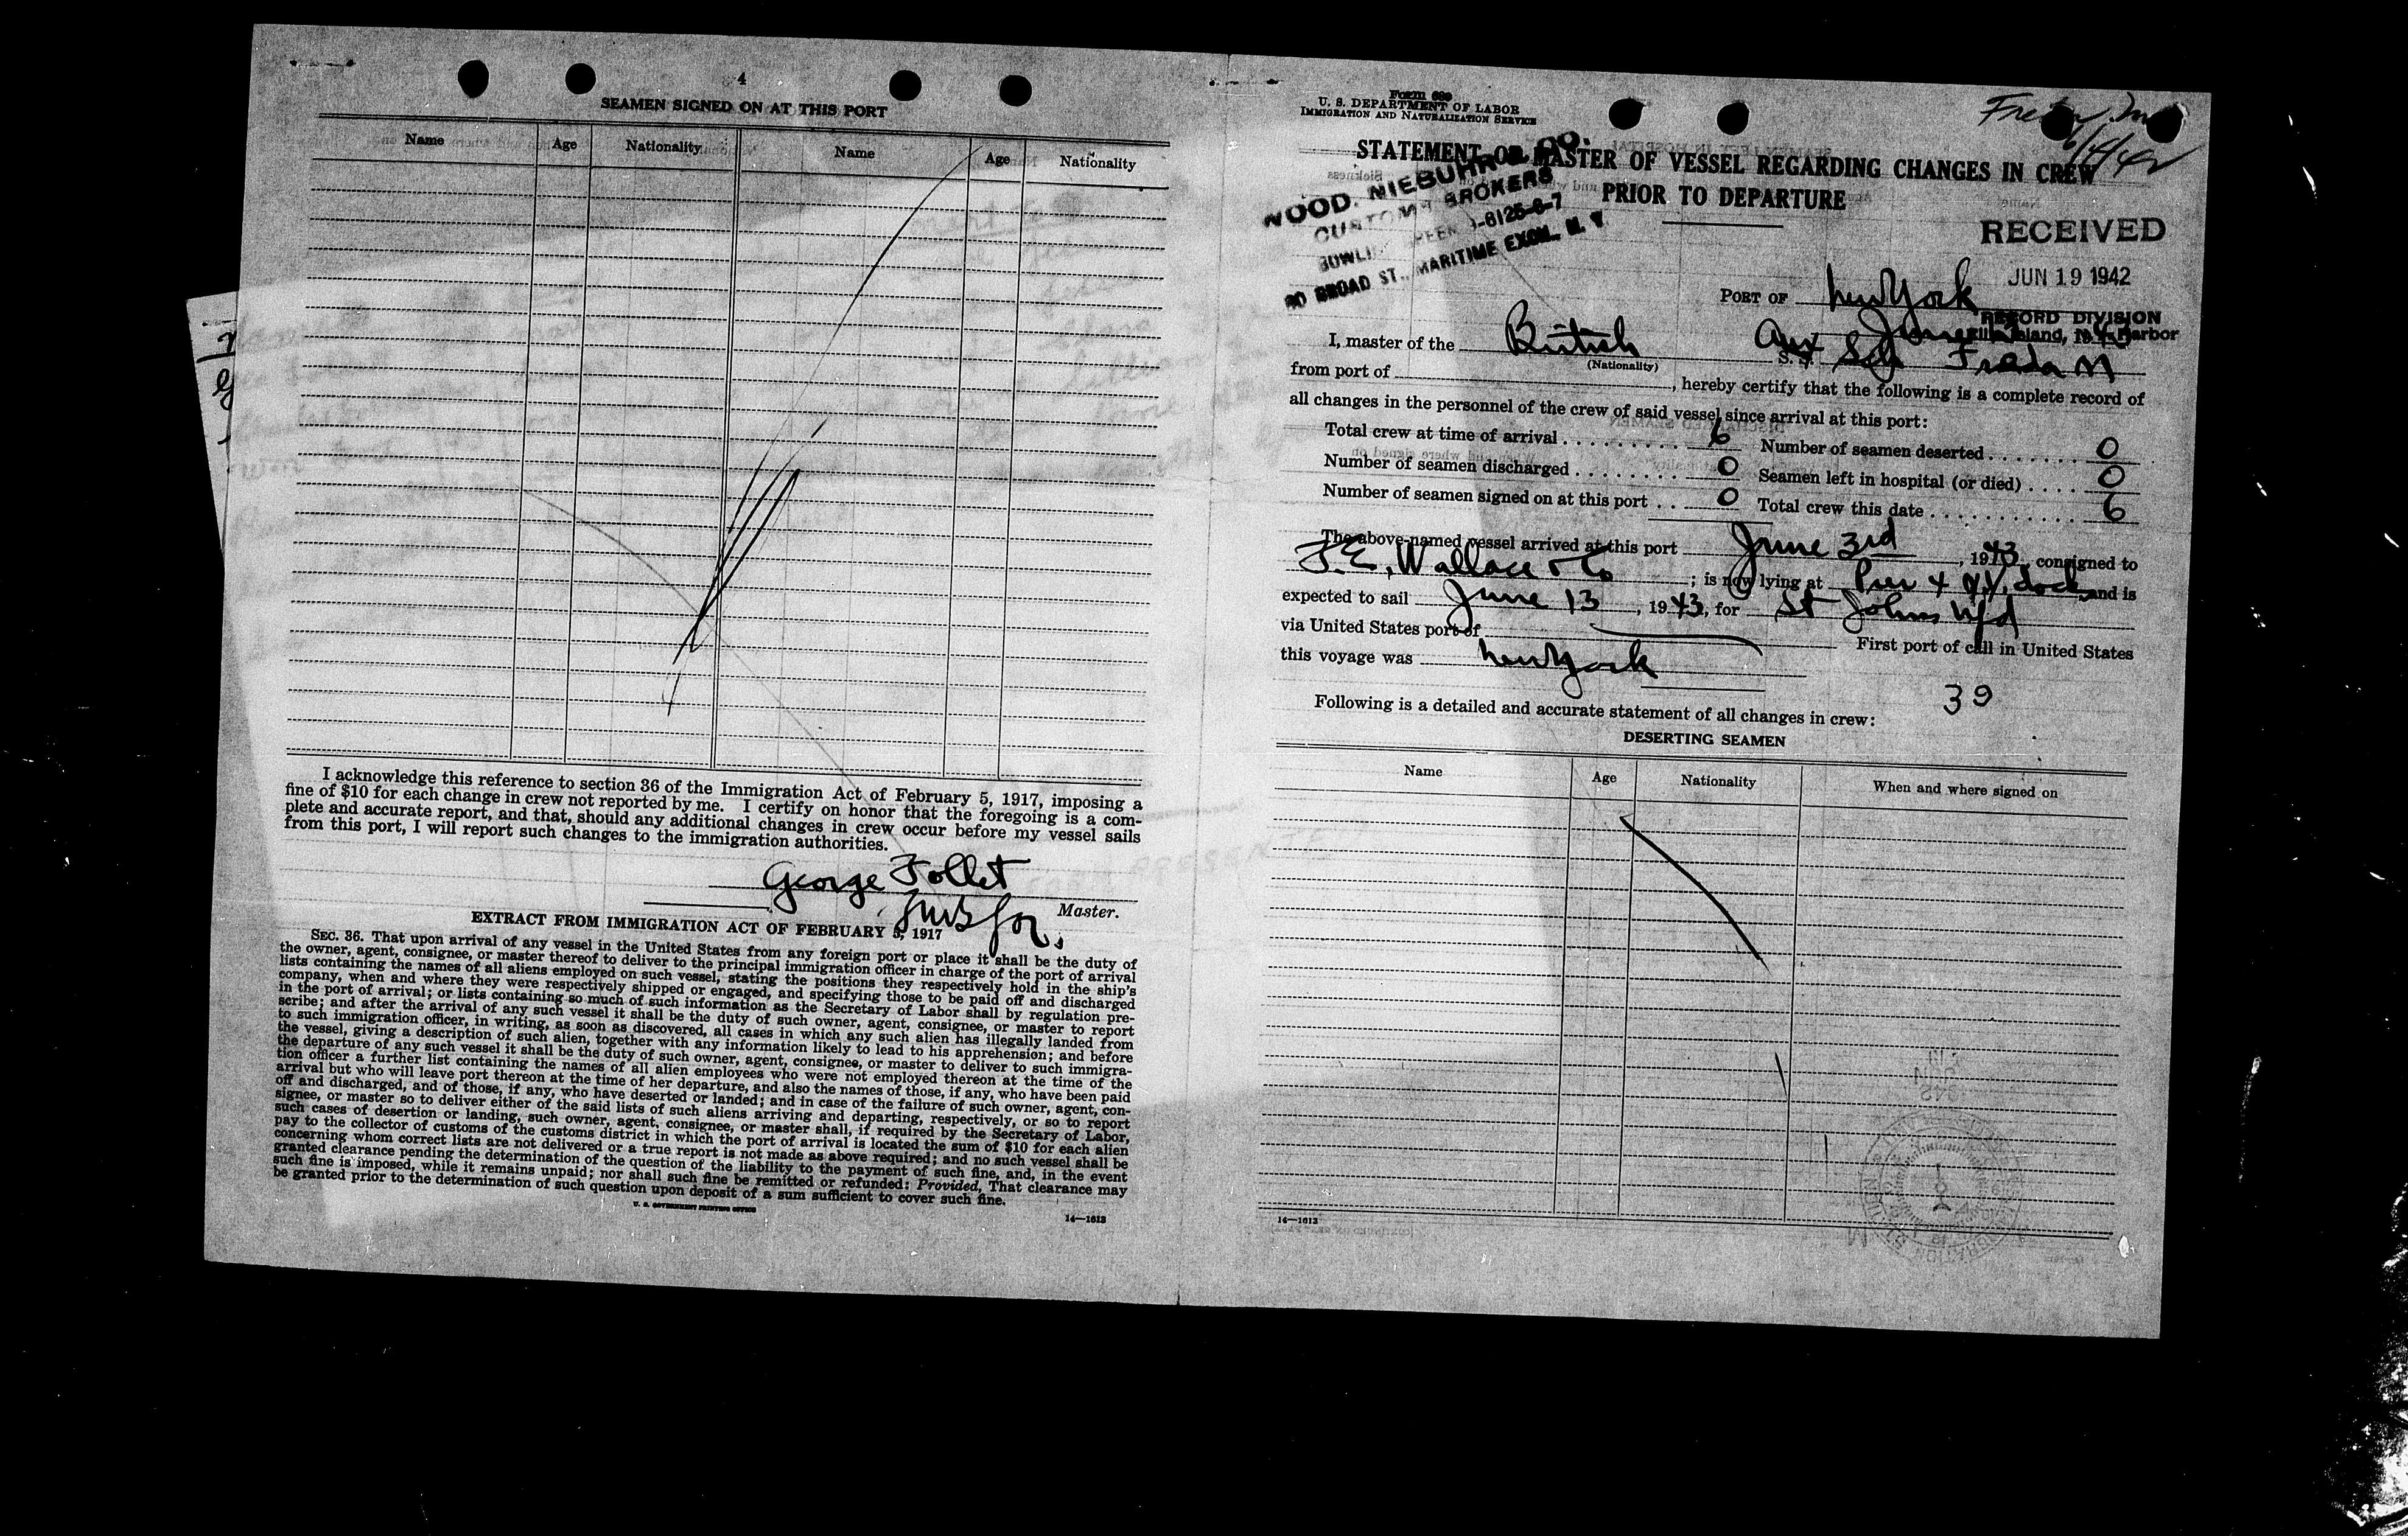 4
SEAMEN SIGNED ON AT THIS PORT
Name Age Nationality Name Age Nationality
I acknowledge this reference to section 36 of the Immigration Act of February 5, 1917, imposing a
fine of $10 for each change in crew not reported by me. I certify on honor that the foregoing is a com-
plete and accurate report, and that, should any additional changes in crew occur before my vessel sails
from this port, I will report such changes to the immigration authorities.
George Follet
Master.
EXTRACT FROM IMMIGRATION ACT OF FEBRUARY 5, 1917
SEC. 36. That upon arrival of any vessel in the United States from any foreign port or place it shall be the duty of
the owner, agent, consignee, or master thereof to deliver to the principal immigration officer in charge of the port of arrival
lists containing the names of all aliens employed on such vessel, stating the positions they respectively hold in the ship's
company, when and where they were respectively shipped or engaged, and specifying those to be paid off and discharged
in the port of arrival; or lists containing so much of such information as the Secretary of Labor shall by regulation pre-
scribe; and after the arrival of any such vessel it shall be the duty of such owner, agent, consignee, or master to report
to such immigration officer, in writing, as soon as discovered, all cases in which any such alien has illegally landed from
the vessel, giving a description of such alien, together with any information likely to lead to his apprehension; and before
the departure of any such vessel it shall be the duty of such owner, agent, consignee, or master to deliver to such immigra-
tion officer a further list containing the names of all alien employees who were not employed thereon at the time of the
arrival but who will leave port thereon at the time of her departure, and also the names of those, if any, who have been paid
off and discharged, and of those, if any, who have deserted or landed; and in case of the failure of such owner, agent, con-
signee, or master so to deliver either of the said lists of such aliens arriving and departing, respectively, or so to report
such cases of desertion or landing, such owner, agent, consignee, or master shall, if required by the Secretary of Labor,
pay to the collector of customs of the customs district in which the port of arrival is located the sum of $10 for each alien
concerning whom correct lists are not delivered or a true report is not made as above required; and no such vessel shall be
granted clearance pending the determination of the question of the liability to the payment of such fine, and, in the event
such fine is imposed, while it remains unpaid; nor shall such fine be remitted or refunded: Provided, That clearance may
be granted prior to the determination of such question upon deposit of a sum sufficient to cover such fine.
U. S. GOVERNMENT PRINTING OFFICE
14—1613
Form 689
U. S. DEPARTMENT OF LABOR
IMMIGRATION AND NATURALIZATION SERVICE
STATEMENT OF MASTER OF VESSEL REGARDING CHANGES IN CREW
PRIOR TO DEPARTURE
WOOD, NIEBUHR & CO.
CUSTOMS BROKERS
BOWLING GREEN 9-6125-6-7
80 BROAD ST., MARITIME EXCH., N. Y.
RECEIVED
JUN 19 1942
RECORD DIVISION
Ellis Island, N. Y. Harbor
PORT OF New York
I, master of the British Aux Sch Freda M
(Nationality) S. S.
from port of , hereby certify that the following is a complete record of
all changes in the personnel of the crew of said vessel since arrival at this port:
Total crew at time of arrival 6 Number of seamen deserted 0
Number of seamen discharged 0 Seamen left in hospital (or died) 0
Number of seamen signed on at this port 0 Total crew this date 6
The above-named vessel arrived at this port June 3rd, 1943, consigned to
F.E. Wallace & Co ; is now lying at Pier 4 N.Y. dock and is
expected to sail June 13, 1943, for St Johns Nfd
via United States port of First port of call in United States
this voyage was New York
39
Following is a detailed and accurate statement of all changes in crew:
DESERTING SEAMEN
Name Age Nationality When and where signed on
14—1613